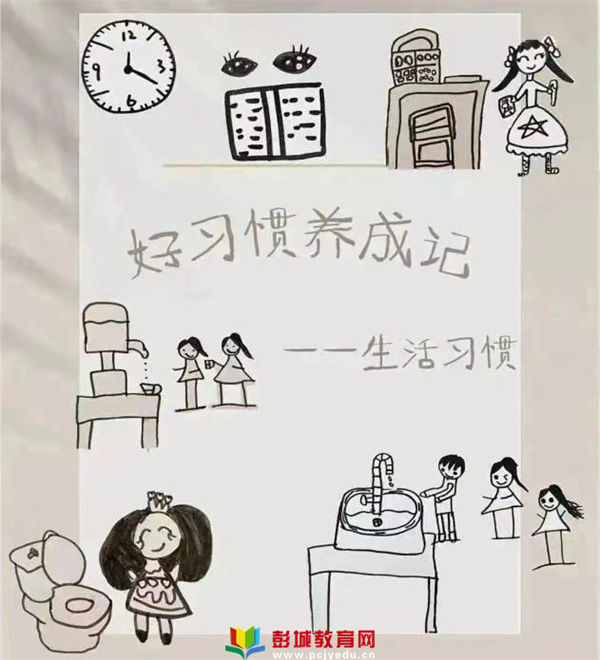 12
3
6
9
好习惯养成记
——生活习惯
彭城教育网
www.pcjyedu.cn